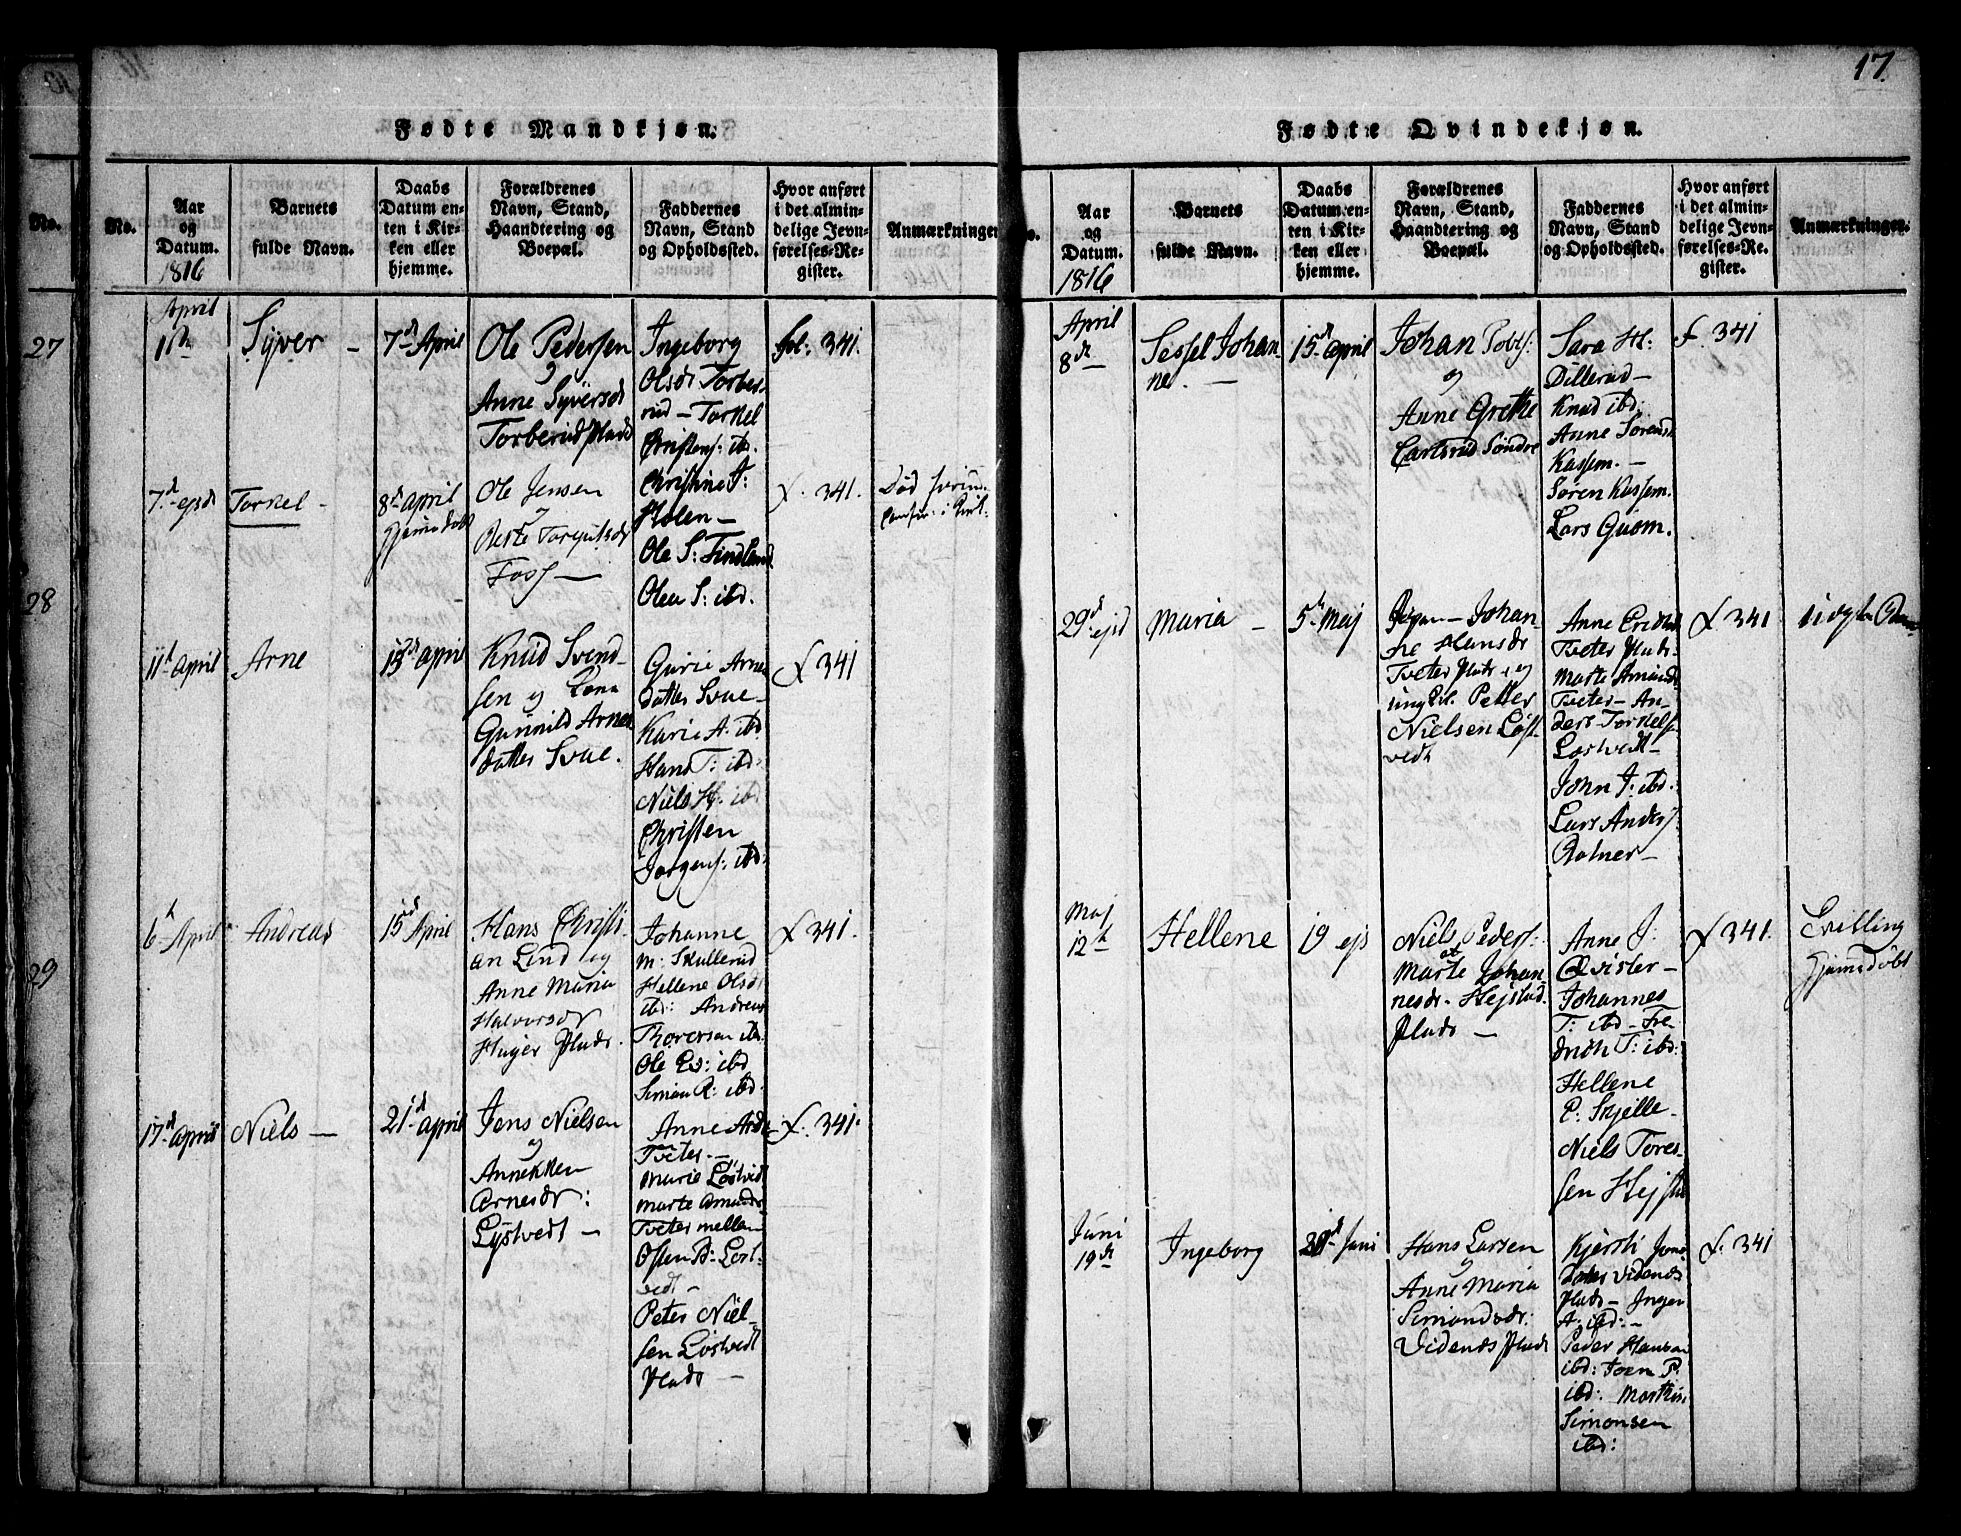 17.
Fødte Mandkjøn.
No.
No.
Aar
og
Datum.
1816
Barnets
fulde Navn.
Daabs
Datum en-
ten i Kir-
ken eller
hjemme.
Forældrenes
Navn, Stand,
Haandtering og
Boepæl.
Faddernes
Navn, Stand
og Opholdssted.
Hvor anført
i det almin-
delige Jevn-
førelses-Re-
gister.
Anmærkninger
27
28
29
April
1te
Syver –
7d April
Ole Pedersen
og
Anne Syversd
Torberud Plads
Ingeborg
Olsdr Torbe-
rud – Torkel
Christens: ibd.
Christine J:
Holen –
Ole S: Findland
Olea S: ibd.
fol: 341.
7d ejsd
Torkel –
8d April
Hjemedøbt
Ole Jensen
og
Torgulsdr
Foss —
f. 341.
Død
11te April
Arne
15d April
Knud Svend-
sen og Kona
Gunnild Arne
datter Svae.
Gurie Arne
datter Svae –
Karie A: ibd.
Hans T: ibd.
Niels H: ibd
Christen
Jørgens: ibd:
f 341
6te April
Andreas
15d April
Hans Christi-
an Lind og
Anne Maria
Halvorsdr
Plads.
Johanne
M: Skullerud
Hellene Olsdr
ibd: Andreas
Thoresen ibd.
Ole Es: ibd
Simon R: ibd.
f 341.
17d April
Niels —
21d April
Jens Nielsen
og
Annekken
Arnesdr:
Lystvedt –
Anne
Tveter –
Marie Løstvedt
Marte Amunds
Tveter mellem
Osten B: Løst-
vedt –
Peter Niel-
sen Løstvedt
Plads —
f: 341.
Fødte Qvindekjøn.
Aar
og
Datum.
1816
Barnets
fulde Navn.
Daabs
Datum en-
ten i Kir-
ken eller
hjemme.
Forældrenes
Navn, Stand,
Haandtering og
Boepæl.
Faddernes
Navn, Stand
og Opholdssted.
Hvor anført
i det almin-
delige Jevn-
førelses-Re-
gister.
Anmærkninger.
April
8de
Sessel Johan-
ne. –
15d April
Johan
og
Anne Grethe
Carlsrud Søndre
Sara H:
Dillerud –
Knud ibd:
Anne Sørensd
Kassem. –
Søren Kassem.
Lars Guom.
f. 341
29d ejsd
Maria –
5te Maj
Pigen – Johan-
ne Hansdr
Tveter Plads og
ungkl. Petter
Nielsen Løst-
vedt
Anne
Tveter Plads –
Marte Amunds
Tveter – An-
ders Torkels
Løstvedt –
John J: ibd.
Lars Anders
f 341
Maj
12te
Hellene
19 ejs
Niels Peders:
et
Marte Johan
nesdr. Hejstad
Plads —
Anne J:
Qvister –
Johannes
T: ibd – Fre-
drich T: ibd:
Hellene
P: Skjelle –
Niels Tores-
sen Hejstad
f 341.
Tvilling
Hjemedøbt
Juni
19de
Ingeborg
Juni
Hans Larsen
og
Anne Maria
Simonsdr:
Vidends Plads
Kjersti Jons
datter Vidends
Plads – Inger
A: ibd: –
Peder Hansen
ibd: Joen P:
ibd:
Simonsen
ibd:
f. 341